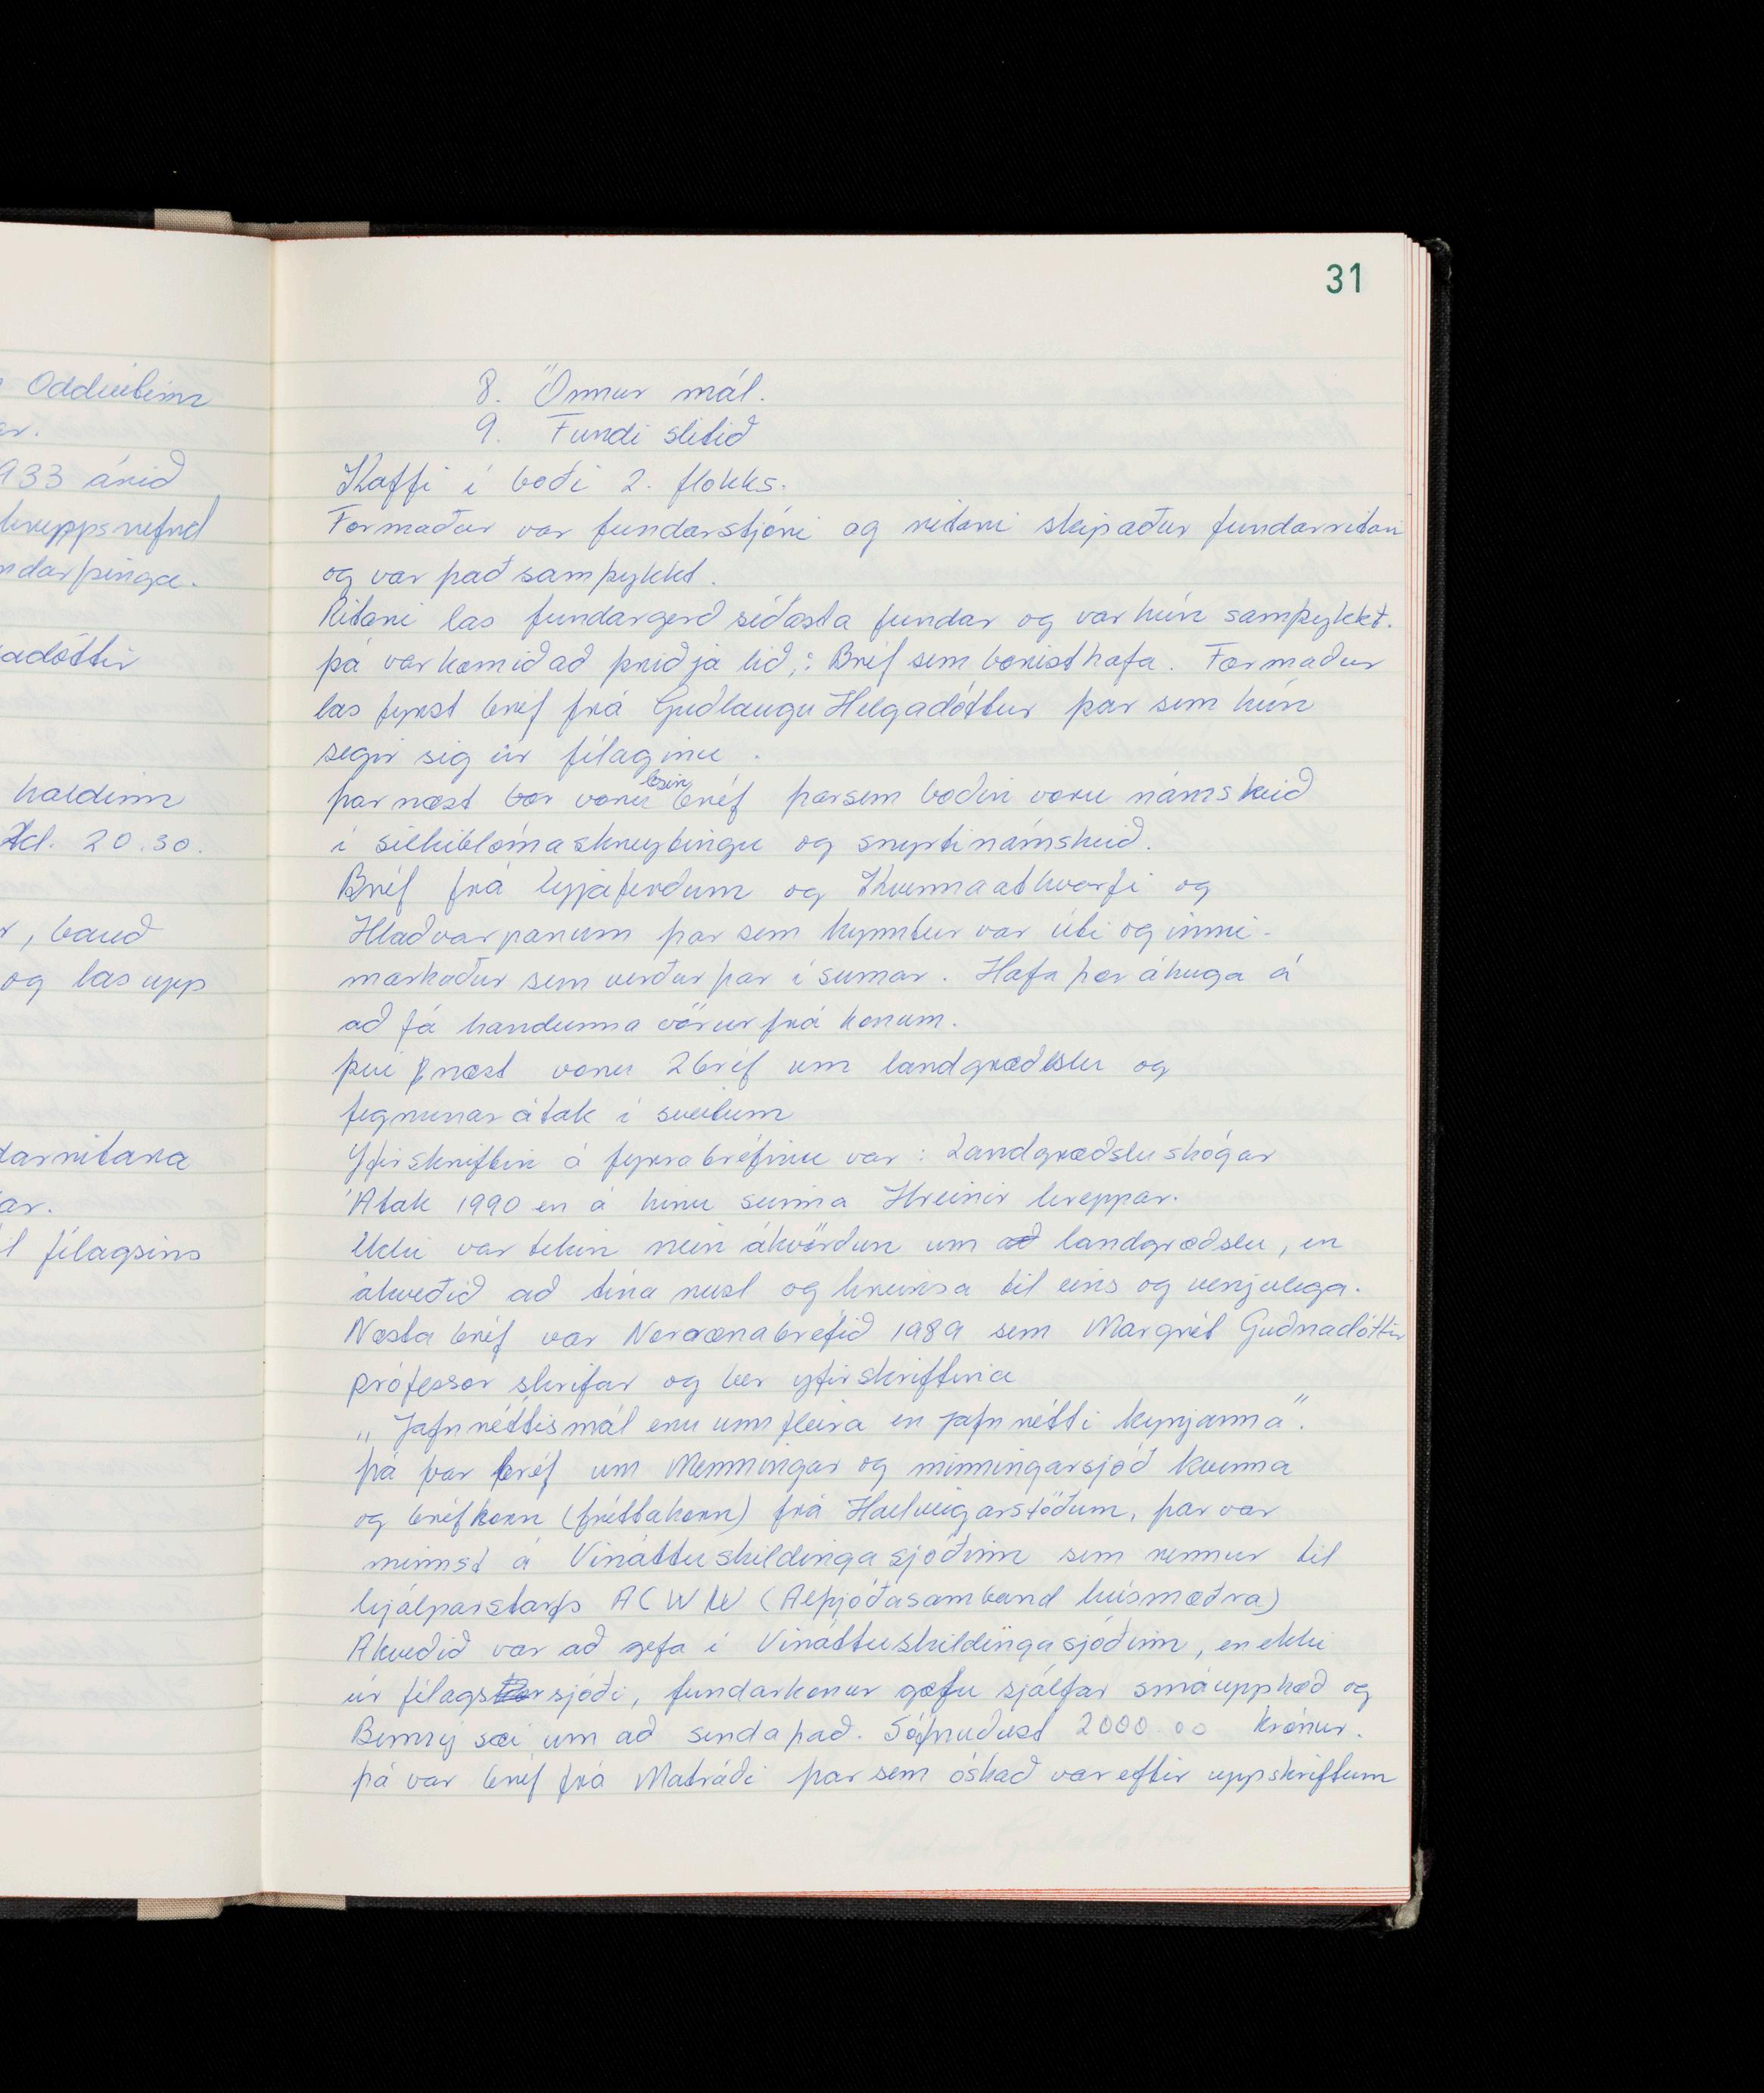 Oddviti
ar.
933 árið
hreppsnefnd
ndarþinga.
adóttir
haldinn
kl. 20.30.
r, bauð
og las upp
darritara
ar.
l félagsins
31
8. Önnur mál.
9. Fundi slitið
Kaffi í boði 2. flokks.
Formaður var fundarstjóri og ritari skipaður fundarritari
og var það samþykkt.
Ritari las fundargerð síðasta fundar og var hún samþykkt.
þá var komið að þriðja lið,: Bréf sem borist hafa. Formaður
las fyrst bréf frá Guðlaugu Helgadóttur þar sem hún
segir sig úr félaginu.
þar næst voru lesin bréf þarsem boðin voru námskeið
í silkiblómaskreytingu og snyrtinámskeið.
Bréf frá Eyjaferðum og Kvennaathvarfi og
Hlaðvarpanum þar sem kynntur var úti og inni-
markaður sem verður þar í sumar. Hafa þær áhuga á
að fá handunna vörur frá konum.
því næst voru 2 bréf um landgræðslu og
fegrunarátak í sveitum
Yfirskriftin á fyrra bréfinu var: Landgræðsluskógar
Átak 1990 en á hinu sunna Hreinir hreppar.
Ekki var tekin nein ákvörðun um að landgræðslu, en
ákveðið að tína rusl og hreinsa til eins og venjulega.
Næsta bréf var Norrænabréfið 1989 sem Margrét Guðnadóttir
prófessor skrifar og ber yfirskriftina
„Jafnréttismál eru um fleira en jafnrétti kynjanna".
þá var bréf um Menningar og minningarsjóð kvenna
og bréfkorn (fréttakorn) frá Hallveigarstöðum, þar var
minnst á Vináttuskildingasjóðinn sem rennur til
hjálparstarfs ACWW (Alþjóðasamband húsmæðra)
Ákveðið var að gefa í Vináttuskildingasjóðinn, en ekki
úr félagssjóði, fundarkonur gæfu sjálfar smáupphæð og
sæi um að senda það. Söfnuðust 2000.00 krónur.
þá var bréf frá Matráði þar sem óskað var eftir uppskriftum